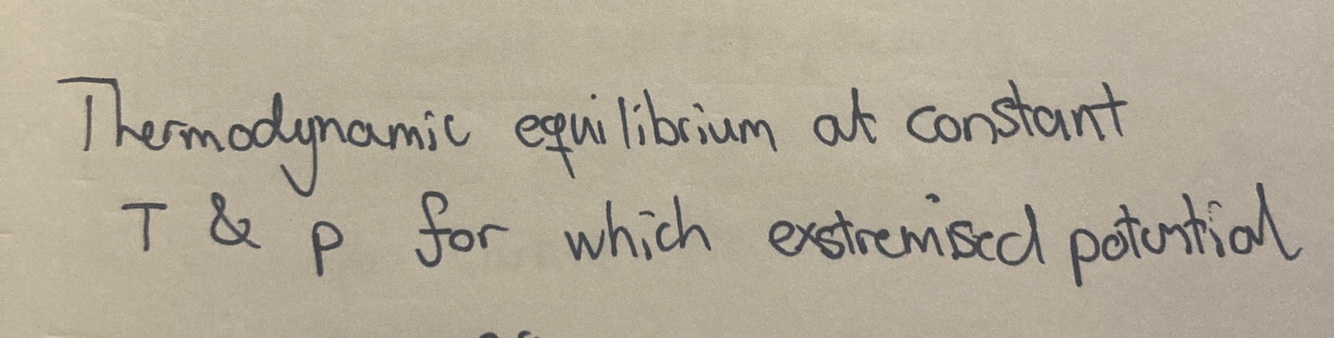 Thermodynamic equilibrium at constant
T & p for which exstremised potential